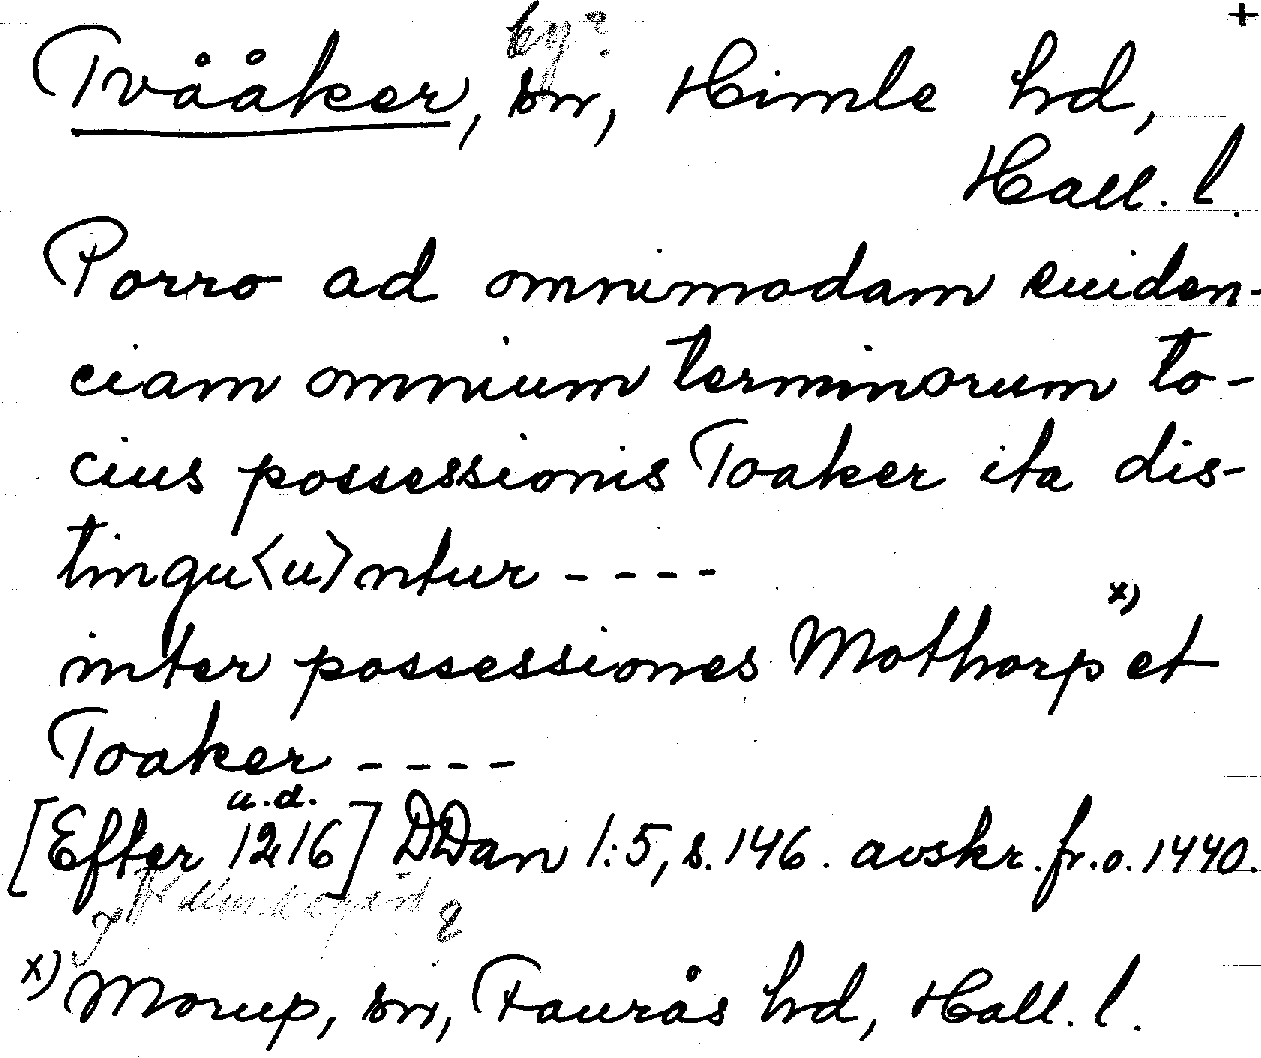 +
by?
Tvååker, sn, Himle hd,
Hall. l.
Porro ad omnimodam euiden-
ciam omnium terminorum to-
cius possessionis Toaker ita dis-
tingu<u>ntur ----
inter possessiones Mothorp x) et
Toaker ----
u.d.
[Efter 1216] DDan 1:5, s. 146. avskr. fr. o. 1440.
x) Morup, sn, Faurås hd, Hall. l.